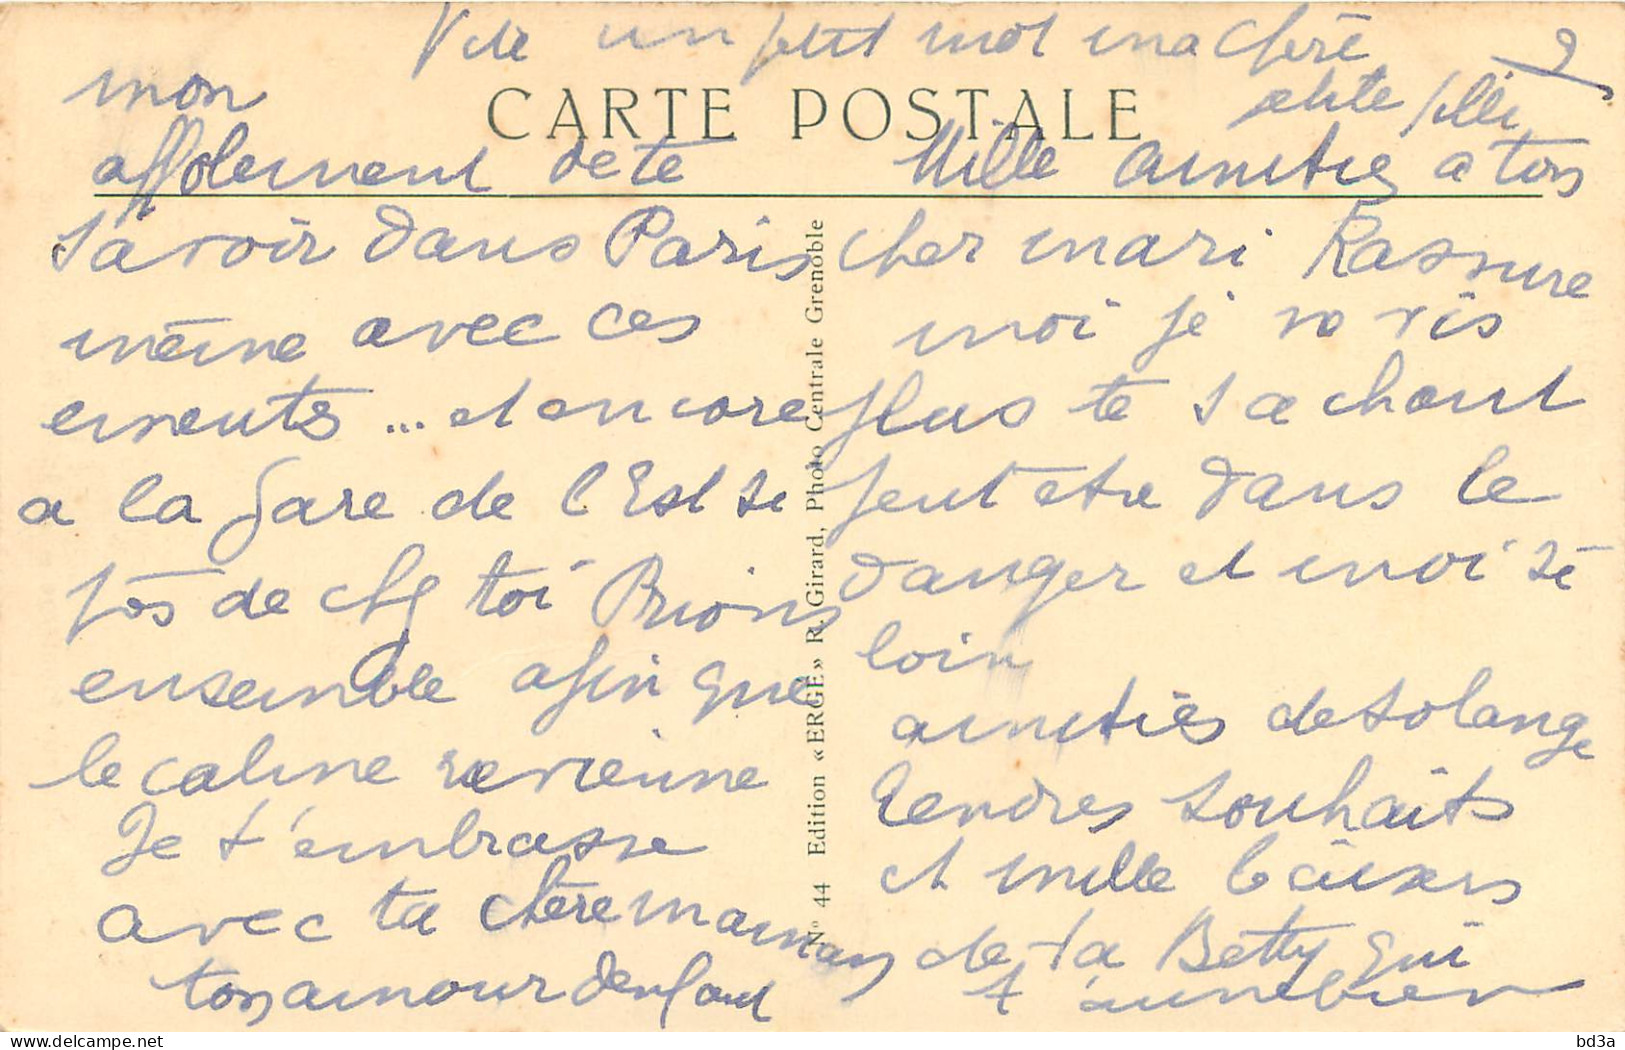 Vite un petit mot ma chère
petite fille
CARTE POSTALE
mon
affolement de te
savoir dans Paris
même avec ces
émeutes ... et encore
a la gare de l'Est si
près de chez toi Prions
ensemble afin que
le calme revienne
Je t'embrasse
avec ta chère maman
ton amour d'enfant
Mille amitiés a ton
cher mari Rassure
moi je ne vis
plus te sachant
peut etre dans le
danger et moi si
loin
amitiés de Solange
tendres souhaits
et mille baisers
de ta Betty qui
t'aime bien
N° 44 Edition «ERGE» R. Girard, Photo Centrale Grenoble
bd3a